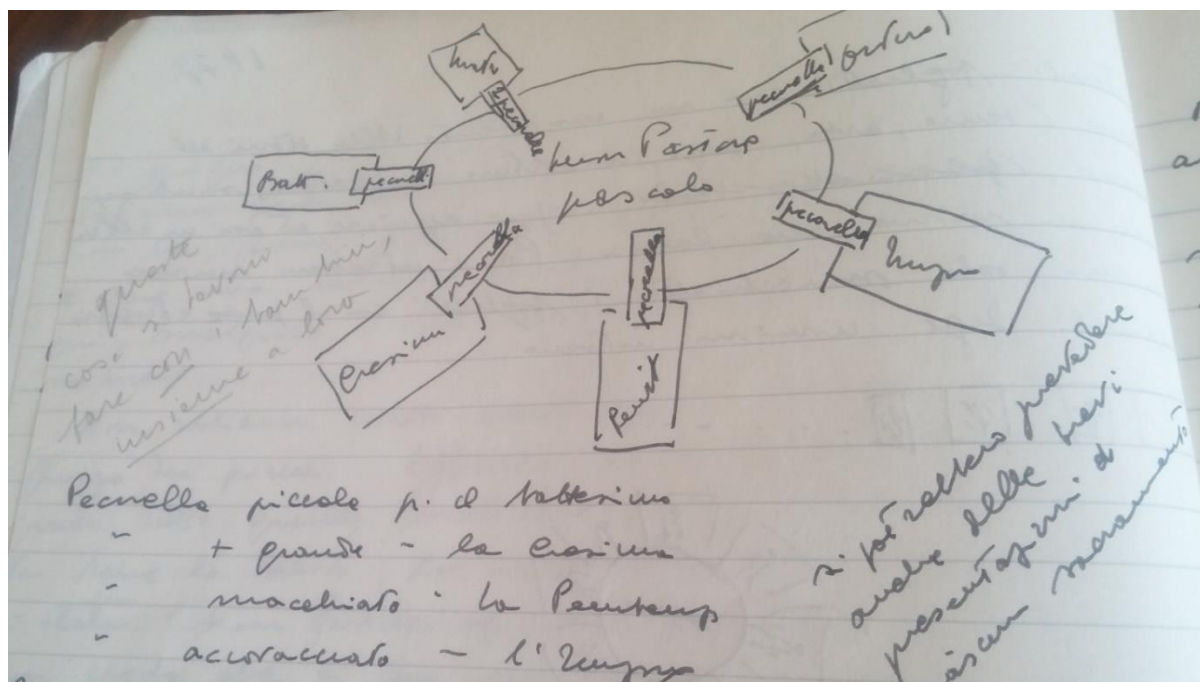 pecorella
Ordine
2 pecorelle
buon Pastore
pascolo
Batt.
pecorell.
pecorella
pecorella
pecorella
Cresima
Penit
queste
si
cose
fare con i bambini,
insieme a loro
Pecorella piccola p. il battesimo
" + grande - la Cresima
" macchiato - la Penitenza
" accovacciato - l'
si potrebbero prevedere
anche delle brevi
presentazioni di
ciascun sacramento